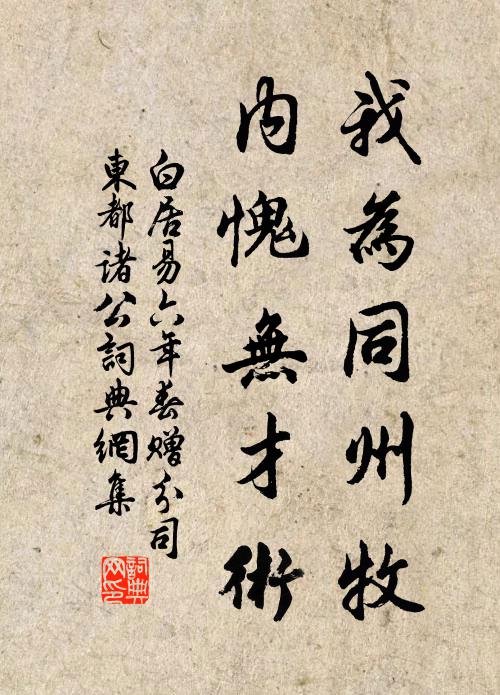 我為同州牧
內愧無才術
白居易六年春贈分司
東都諸公詞典網集
詞典
網印